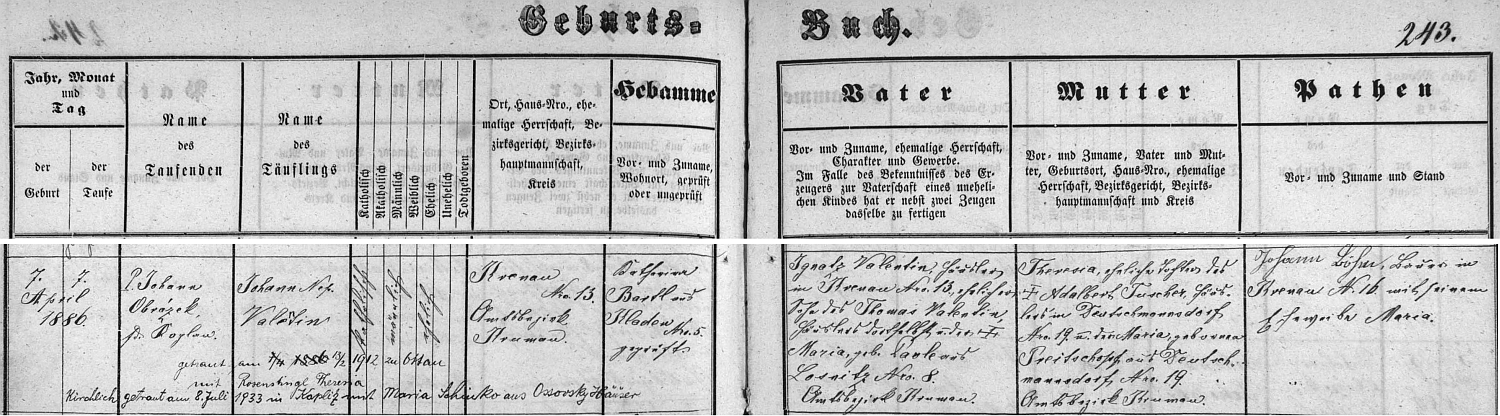 Geburts=
Buch.
243.
Jahr, Monat
und
Tag
der
Geburt
der
Taufe
Name
des
Taufenden
Name
des
Täuflings
Katholisch
Akatholisch
Männlich
Weiblich
Ehelich
Unehelich
Todtgeboren
Ort, Haus-Nro., ehe-
malige Herrschaft, Be-
zirksgericht, Bezirks-
hauptmannschaft,
Kreis
Hebamme
Vor- und Zuname,
Wohnort, geprüft
oder ungeprüft
Vater
Vor- und Zuname, ehemalige Herrschaft,
Charakter und Gewerbe.
Im Falle des Bekenntnisses des Er-
zeugers zur Vaterschaft eines uneheli-
chen Kindes hat er nebst zwei Zeugen
dasselbe zu fertigen
Mutter
Vor- und Zuname, Vater und Mut-
ter, Geburtsort, Haus-Nro., ehemalige
Herrschaft, Bezirksgericht, Bezirks-
hauptmannschaft und Kreis
Pathen
Vor- und Zuname und Stand
7. 7.
April
1886
P. Johann
Obrázek,
Kaplan.
Johann Nep.
Valentin
katholisch
männlich
ehelich
Krenau
Nro. 13.
Amtsbezirk
Krumau.
Katharina
Bartl aus
Nro. 5.
geprüft
Ignatz Valentin, Häusler
in Krenau Nro. 13, ehelicher
Sohn des Thomas Valentin,
Häuslers daselbst, u. der †
Maria, geb.
Nro. 8.
Amtsbezirk Krumau.
Theresia, eheliche Tochter des
† Adalbert Tuscher, Häus-
lers in Deutschmannsdorf
Nro. 19 u. der Maria, geborenen
Preitschopf aus Deutsch-
mannsdorf Nro. 19
Amtsbezirk Krumau.
Johann Böhm, Bauer in
Krenau N. 16 mit seinem
Eheweibe Maria.
getraut am 13/2 1912 zu Oktau
mit Rosenstingl Theresia
Kirchlich getraut am 8. Juli 1933 in Kaplitz mit Maria aus